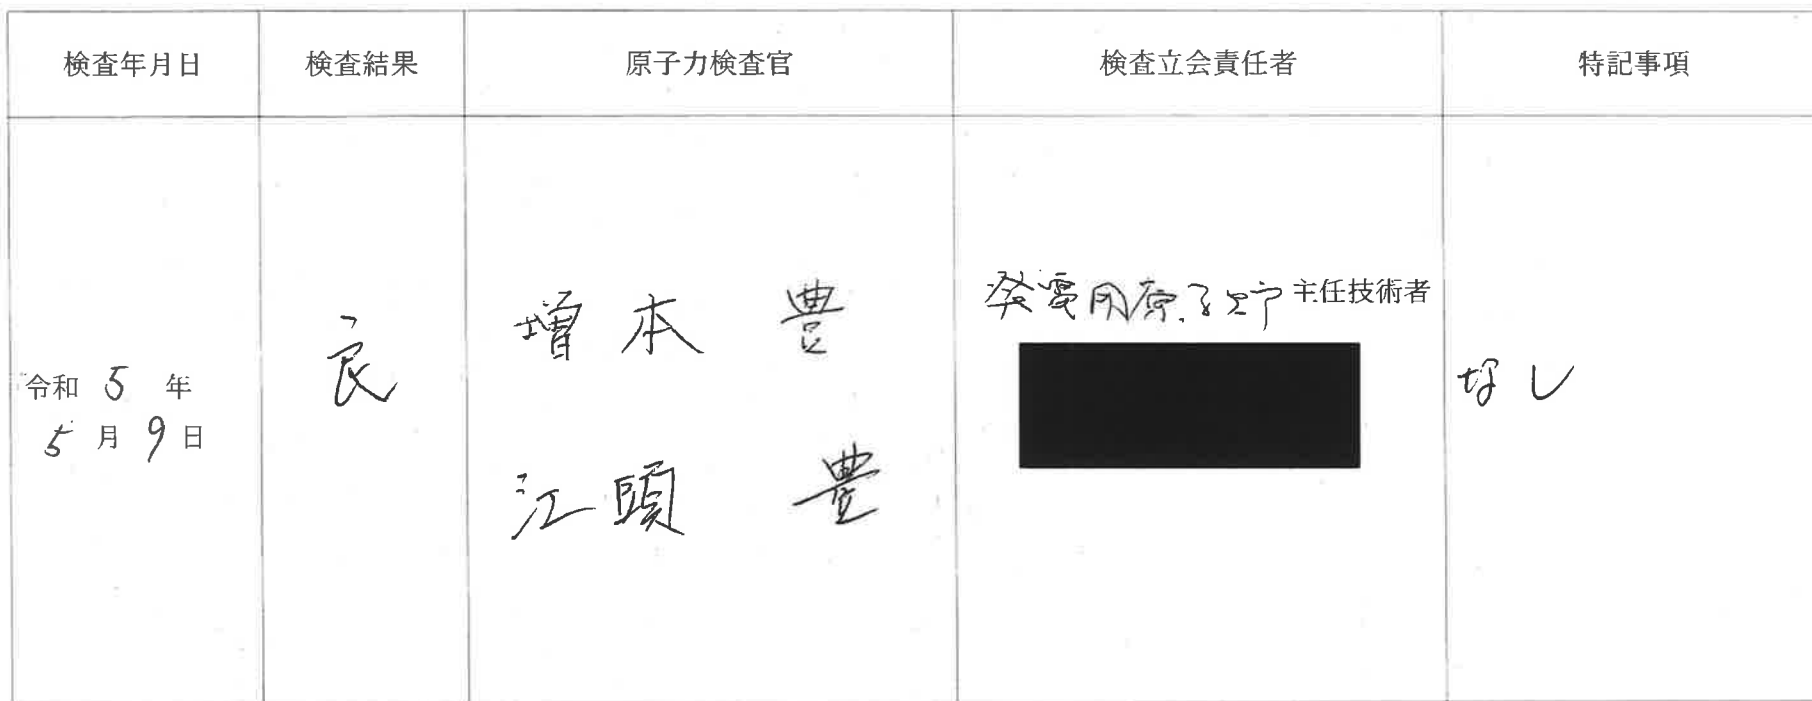 検査年月日 検査結果 原子力検査官 検査立会責任者 特記事項
令和 5 年
5 月 9 日
良
増本 豊
江頭 豊
発電用原子炉主任技術者
なし